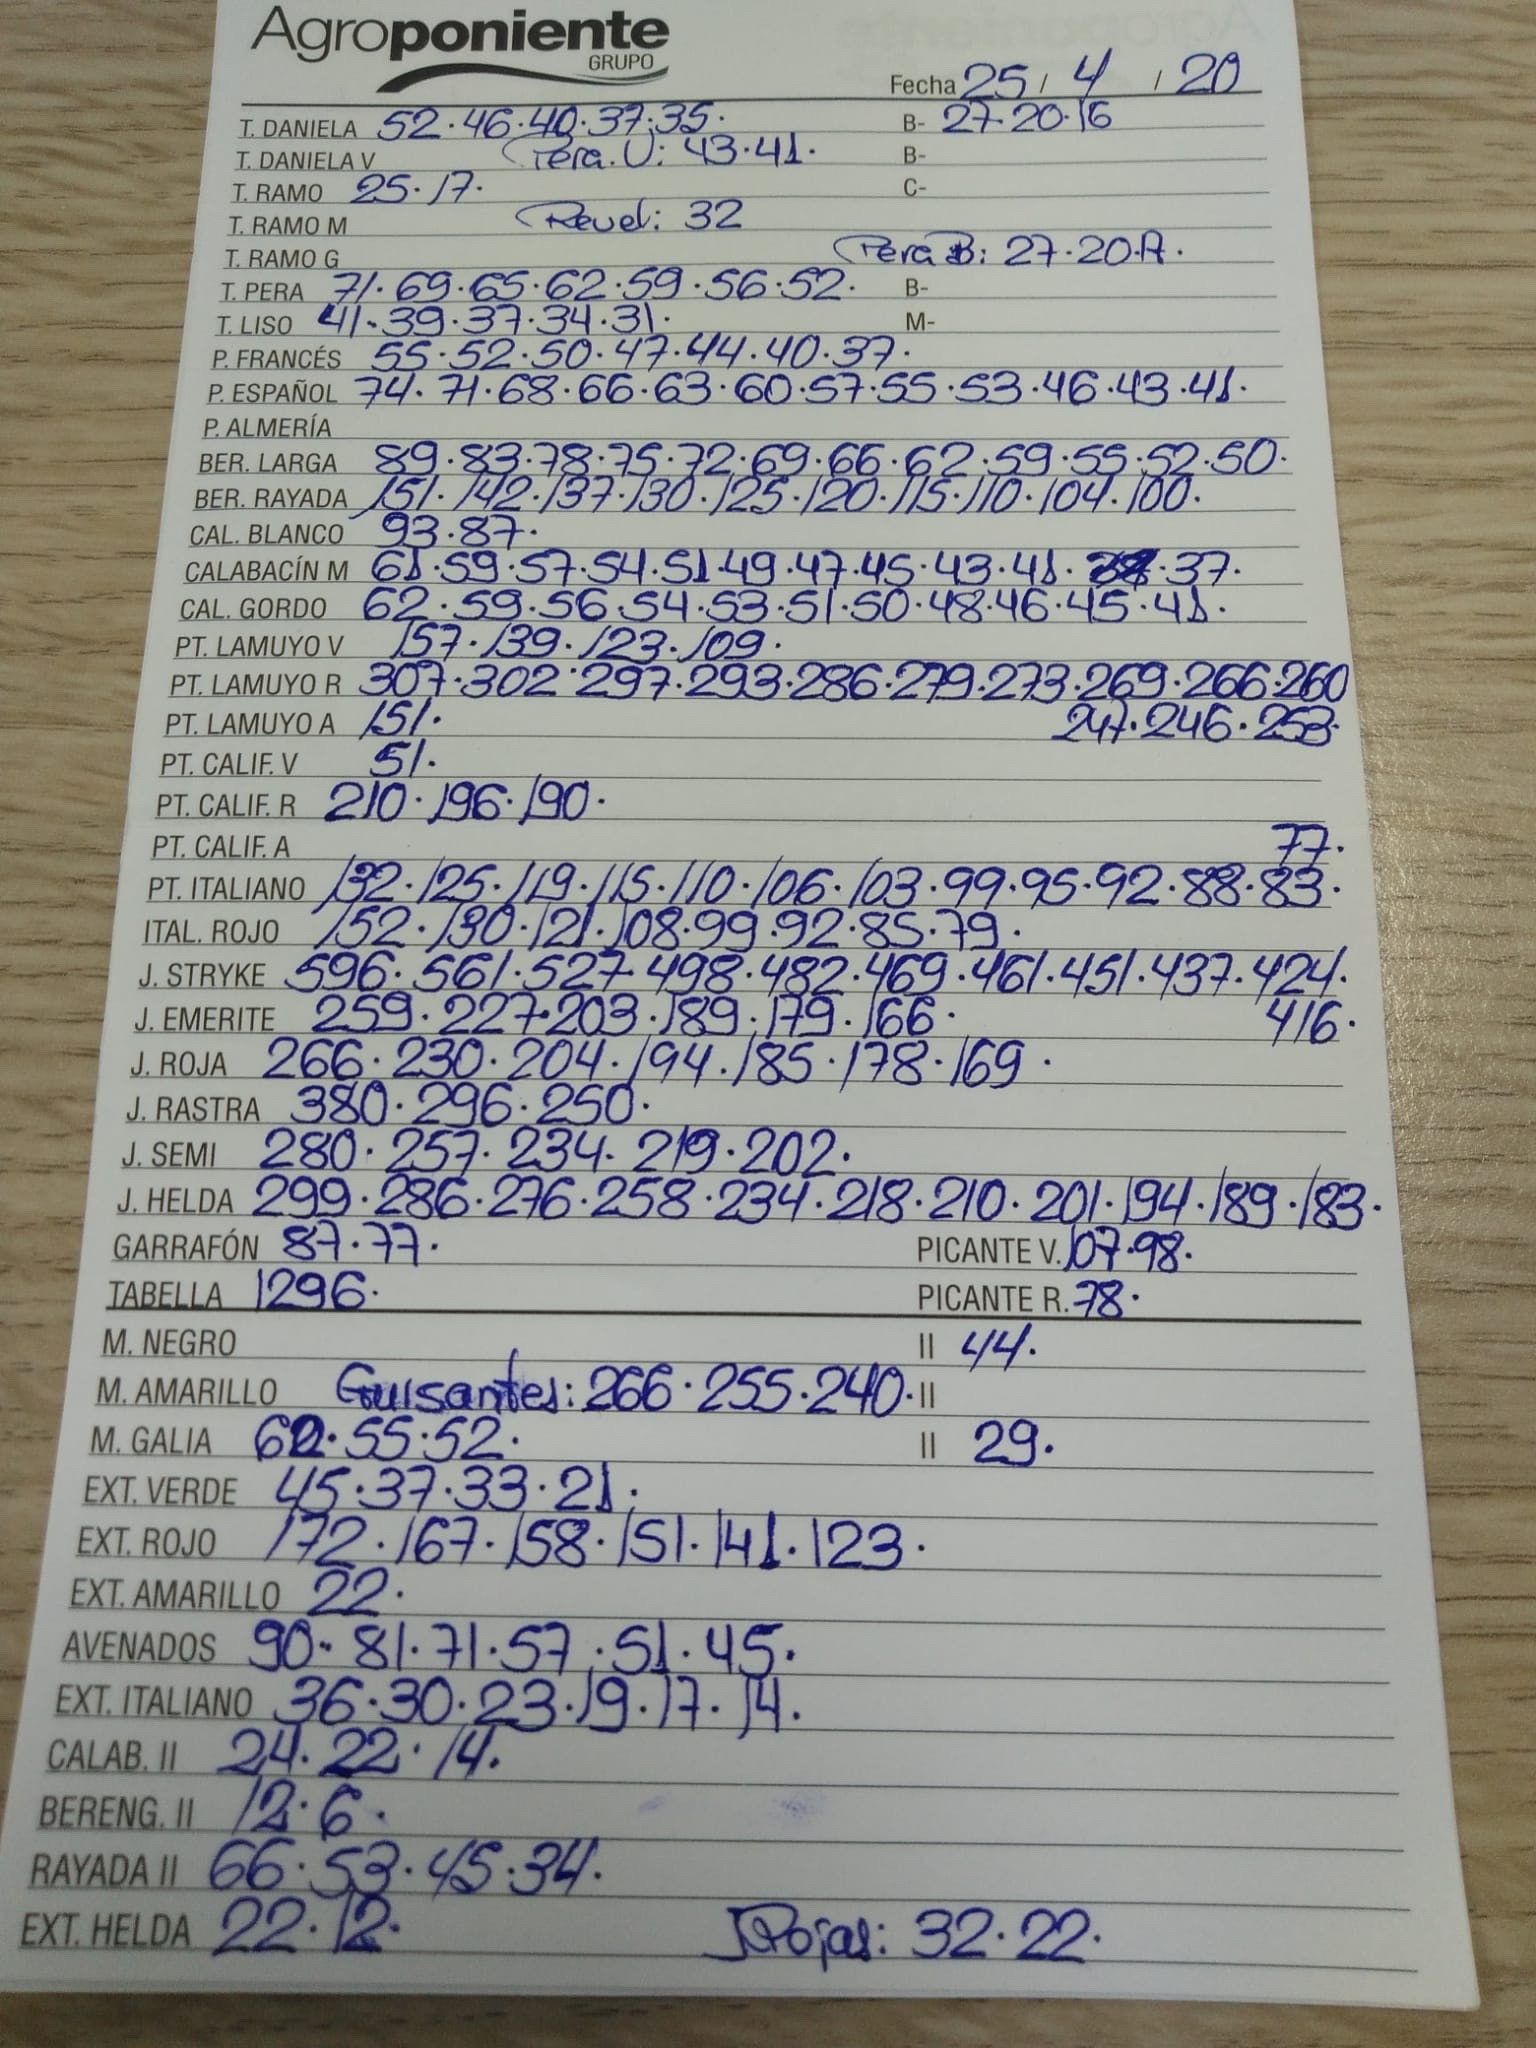 Agroponiente
GRUPO
Fecha 25 / 4 / 20
T. DANIELA 52·46·40·37·35· B- 27·20·16
T. DANIELA V Pera. V: 43·41· B-
T. RAMO 25·17· C-
T. RAMO M Revel: 32
T. RAMO G Pera B: 27·20·A·
T. PERA 71·69·65·62·59·56·52· B-
T. LISO 41·39·37·34·31· M-
P. FRANCÉS 55·52·50·47·44·40·37·
P. ESPAÑOL 74·71·68·66·63·60·57·55·53·46·43·41·
P. ALMERÍA
BER. LARGA 89·83·78·75·72·69·66·62·59·55·52·50·
BER. RAYADA 151·142·137·130·125·120·115·110·104·100·
CAL. BLANCO 93·87·
CALABACÍN M 61·59·57·54·51·49·47·45·43·41· ·37·
CAL. GORDO 62·59·56·54·53·51·50·48·46·45·41·
PT. LAMUYO V 157·139·123·109·
PT. LAMUYO R 307·302·297·293·286·279·273·269·266·260
PT. LAMUYO A 151· 247·246·253·
PT. CALIF. V 51·
PT. CALIF. R 210·196·190·
PT. CALIF. A 77·
PT. ITALIANO 132·125·119·115·110·106·103·99·95·92·88·83·
ITAL. ROJO 152·130·121·108·99·92·85·79·
J. STRYKE 596·561·527·498·482·469·461·451·437·424·
J. EMERITE 259·227·203·189·179·166· 416·
J. ROJA 266·230·204·194·185·178·169·
J. RASTRA 380·296·250·
J. SEMI 280·257·234·219·202·
J. HELDA 299·286·276·258·234·218·210·201·194·189·183·
GARRAFÓN 87·77· PICANTE V. 107·98·
TABELLA 1296· PICANTE R. 78·
M. NEGRO II 44·
M. AMARILLO Guisantes: 266·255·240· II
M. GALIA 62·55·52· II 29·
EXT. VERDE 45·37·33·21·
EXT. ROJO 172·167·158·151·141·123·
EXT. AMARILLO 22·
AVENADOS 90·81·71·57·51·45·
EXT. ITALIANO 36·30·23·19·17·14·
CALAB. II 24·22·14·
BERENG. II 12·6·
RAYADA II 66·53·45·34·
EXT. HELDA 22·12· J Rojas: 32·22·